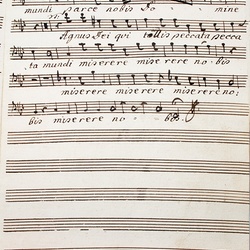 mundi parce nobis Do - mine
Agnus Dei qui tollis peccata pecca
ta mundi miserere miserere no - bis
miserere miserere misererere no:
bis miserere no - bis.